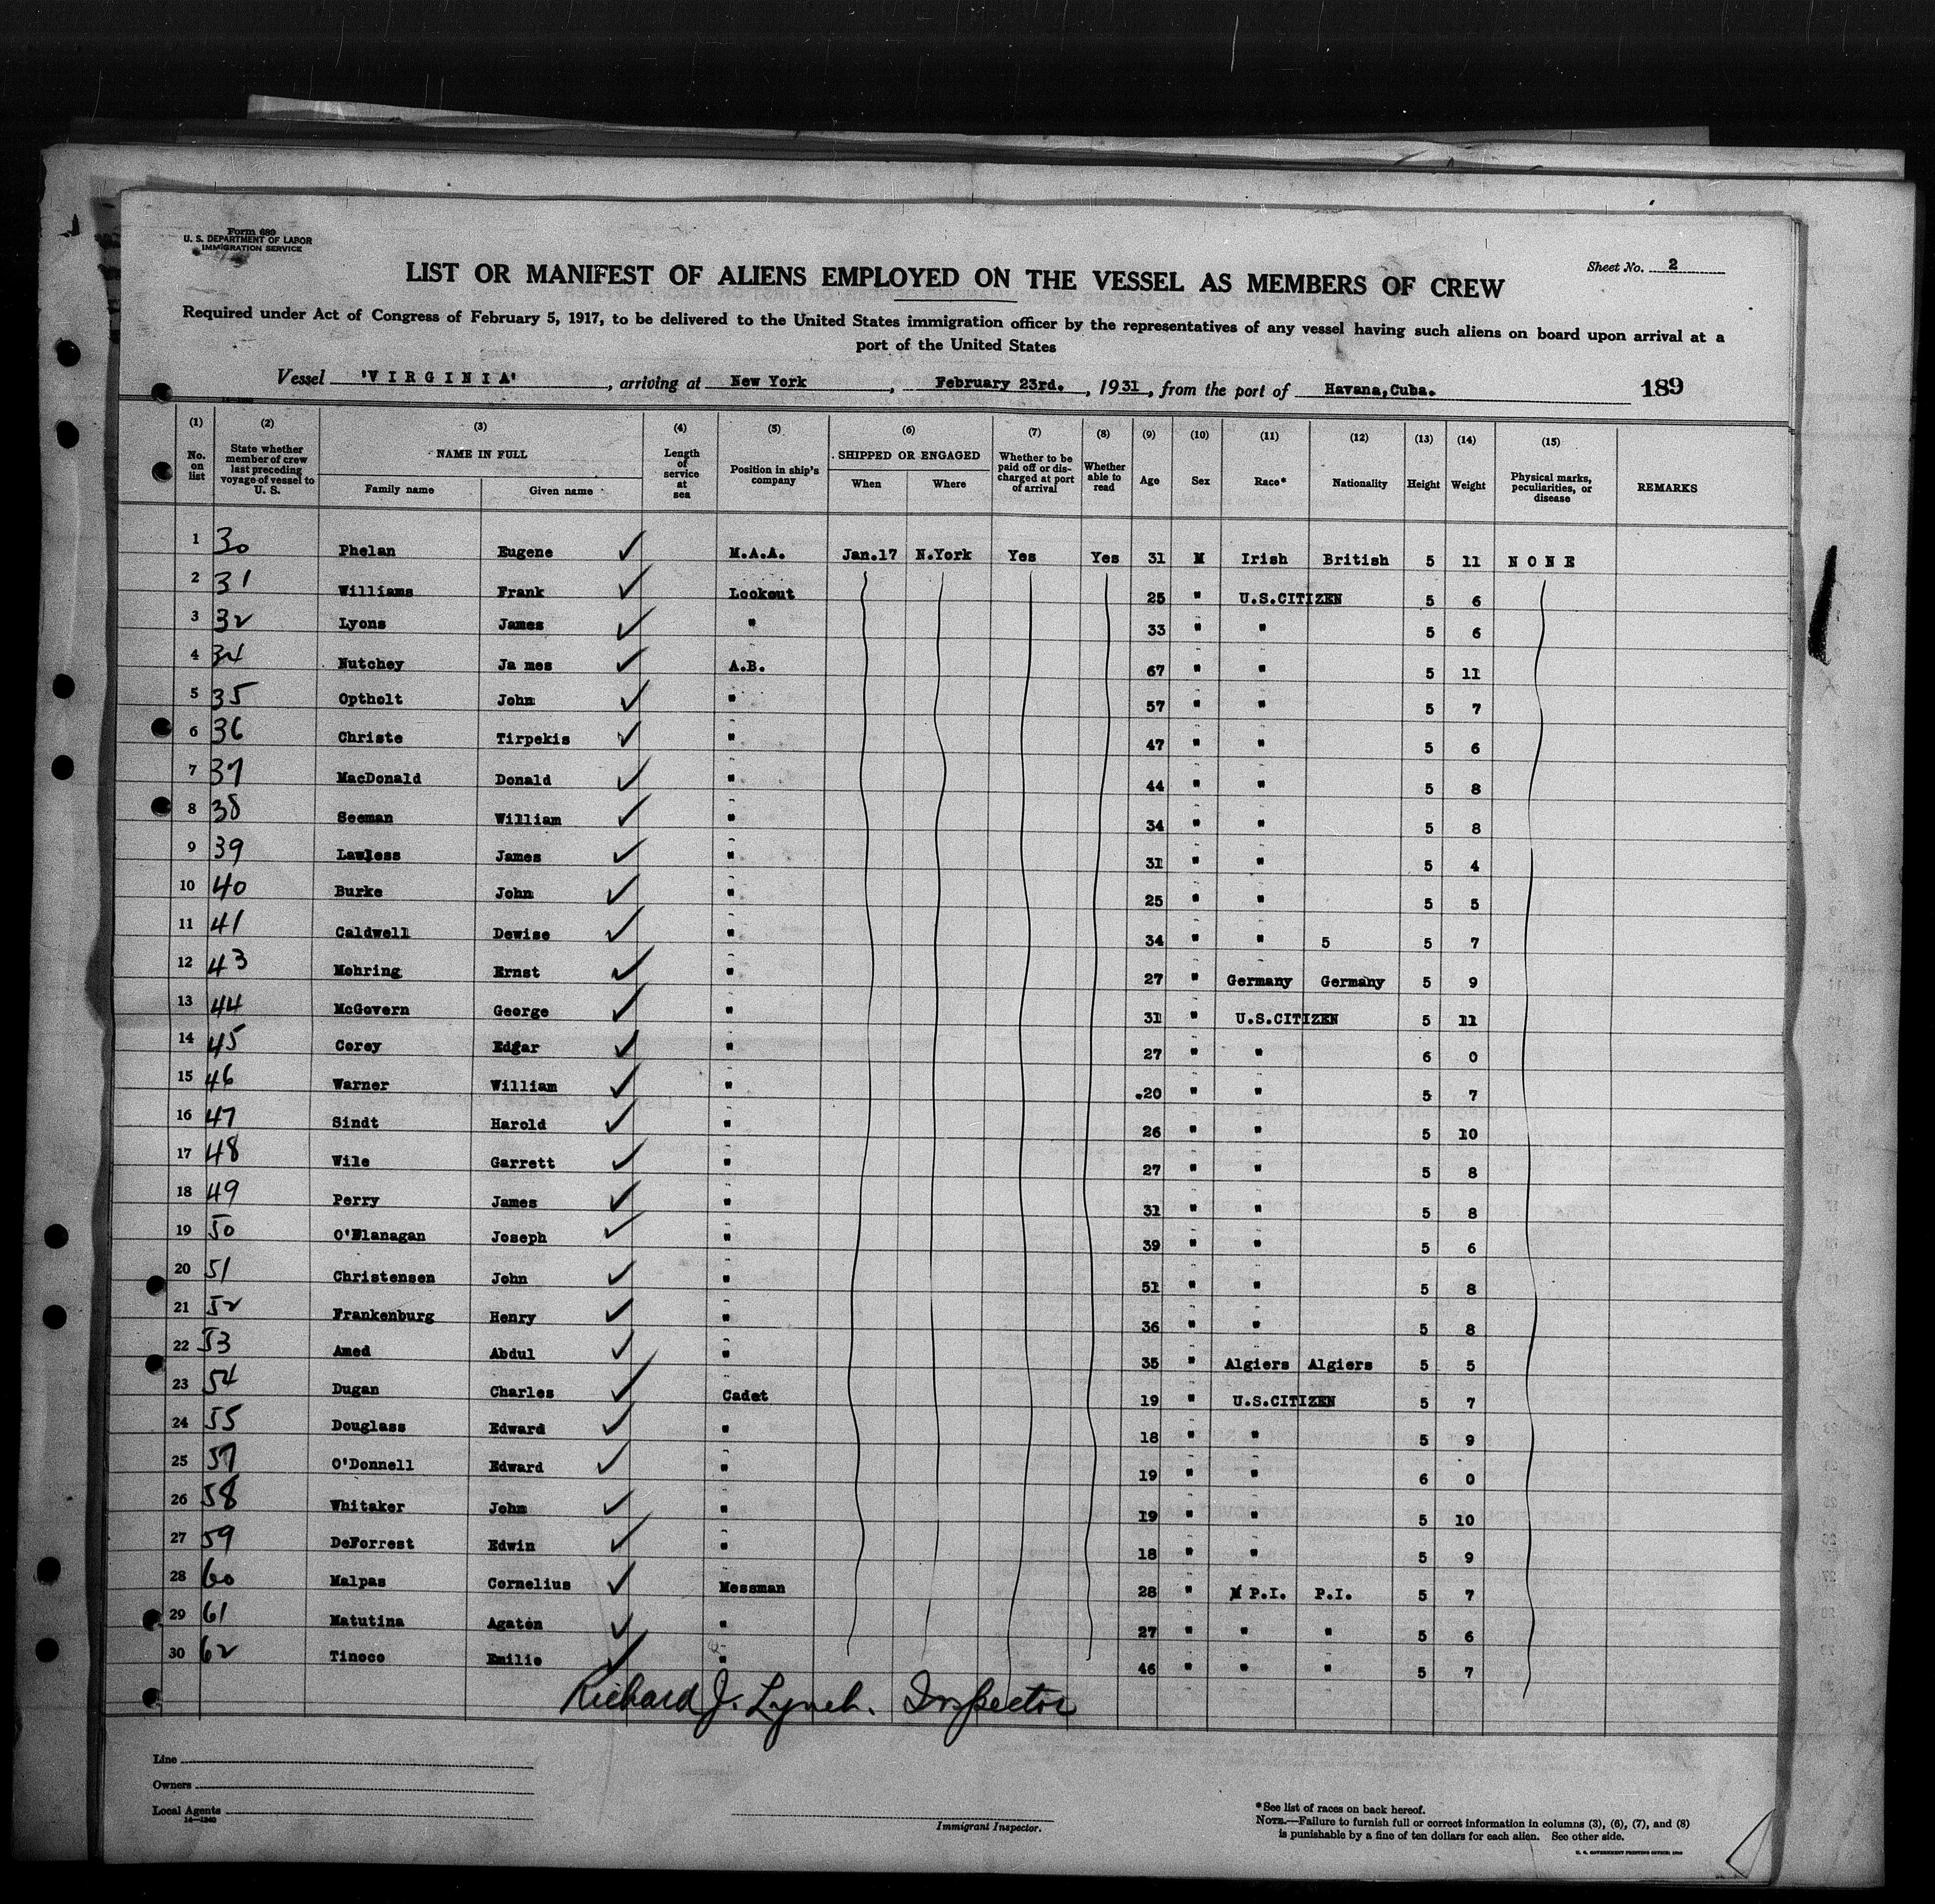 Form 689
U. S. DEPARTMENT OF LABOR
IMMIGRATION SERVICE
Sheet No. 2
LIST OR MANIFEST OF ALIENS EMPLOYED ON THE VESSEL AS MEMBERS OF CREW
Required under Act of Congress of February 5, 1917, to be delivered to the United States immigration officer by the representatives of any vessel having such aliens on board upon arrival at a
port of the United States
Vessel 'VIRGINIA', arriving at New York, February 23rd., 1931, from the port of Havana, Cuba. 189
(1) No. on list
(2) State whether member of crew last preceding voyage of vessel to U. S.
(3) NAME IN FULL Family name Given name
(4) Length of service at sea
(5) Position in ship's company
(6) SHIPPED OR ENGAGED When Where
(7) Whether to be paid off or discharged at port of arrival
(8) Whether able to read
(9) Age
(10) Sex
(11) Race*
(12) Nationality
(13) Height
(14) Weight
(15) Physical marks, peculiarities, or disease
REMARKS
1 30 Phelan Eugene ✓ M.A.A. Jan.17 N.York Yes Yes 31 M Irish British 5 11 NONE
2 31 Williams Frank ✓ Lookout 25 " U.S.CITIZEN 5 6
3 32 Lyons James ✓ " 33 " " 5 6
4 34 Nutchey Ja mes ✓ A.B. 67 " " 5 11
5 35 Optholt John ✓ " 57 " " 5 7
6 36 Christe Tirpekis ✓ " 47 " " 5 6
7 37 MacDonald Donald ✓ " 44 " " 5 8
8 38 Seeman William ✓ " 34 " " 5 8
9 39 Lawless James ✓ " 31 " " 5 4
10 40 Burke John ✓ " 25 " " 5 5
11 41 Caldwell Dewise ✓ " 34 " " 5 5 7
12 43 Mohring Ernst ✓ " 27 " Germany Germany 5 9
13 44 McGovern George ✓ " 31 " U.S.CITIZEN 5 11
14 45 Corey Edgar ✓ " 27 " " 6 0
15 46 Warner William ✓ " .20 " " 5 7
16 47 Sindt Harold ✓ " 26 " " 5 10
17 48 Wile Garrett ✓ " 27 " " 5 8
18 49 Perry James ✓ " 31 " " 5 8
19 50 O'Flanagan Joseph ✓ " 39 " " 5 6
20 51 Christensen John ✓ " 51 " " 5 8
21 52 Frankenburg Henry ✓ " 36 " " 5 8
22 53 Amed Abdul ✓ " 35 " Algiers Algiers 5 5
23 54 Dugan Charles ✓ Cadet 19 " U.S.CITIZEN 5 7
24 55 Douglass Edward ✓ " 18 " " 5 9
25 57 O'Donnell Edward ✓ " 19 " " 6 0
26 58 Whitaker John ✓ " 19 " " 5 10
27 59 DeForrest Edwin ✓ " 18 " " 5 9
28 60 Malpas Cornelius ✓ Messman 28 " P.I. P.I. 5 7
29 61 Matutina Agaton ✓ " 27 " " " 5 6
30 62 Tinoco Emilio ✓ " 46 " " " 5 7
Richard J. Lynch. Inspector
Line
Owners
Local Agents
14—1240
Immigrant Inspector.
*See list of races on back hereof.
NOTE.—Failure to furnish full or correct information in columns (3), (6), (7), and (8)
is punishable by a fine of ten dollars for each alien. See other side.